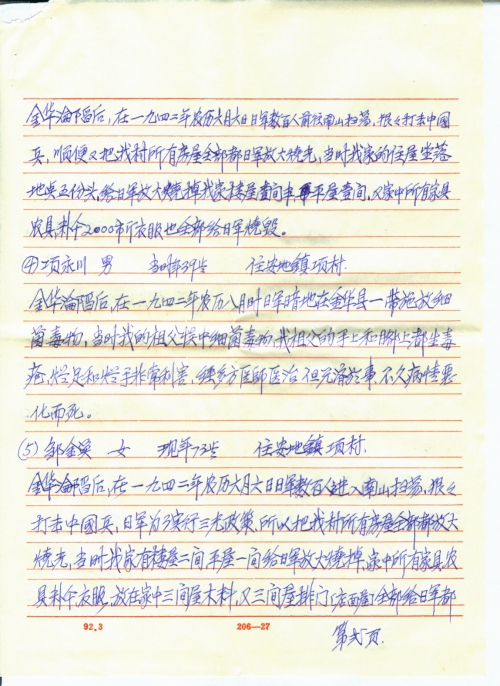 金华沦陷后,在一九四二年农历六月六日日军数百人前往南山扫荡,狠々打击中國
兵,順便又把我村所有房屋全部都日军放火燒光,当时我家的住屋坐落
地吳五份头,给日军放火燒掉我家楼屋壹间半,平屋壹间,又家中所有家具
农具,籼谷2000市斤衣服也全部给日军燒毁。
④项永川 男 当时年39岁 住安地鎮项村.
金华淪陷后,在一九四二年农历八月叶日军暗地在金华县一带施放细
菌毒物,当时我的祖父误中细菌毒物我祖父的手上和脚上都生毒
疮,烂足和烂手非常利害,经多方医师医治,但无濟於事,不久病情惡
化而死。
(5) 邹金奚 女 现年73岁 住安地鎮项村.
金华淪陷后,在一九四二年农历六月六日日军数百人进入南山扫荡,狠々
打击中國兵,日军为了実行三光政策,所以把我村所有房屋全部都放火
燒光,当时我家有楼屋二间,平屋一间给日军放火燒掉,家中所有家具农
具籼谷衣服,放在家中三间屋木料,又三间屋排门(店面屋)全部给日军都
92.3 206—27
第弍页.